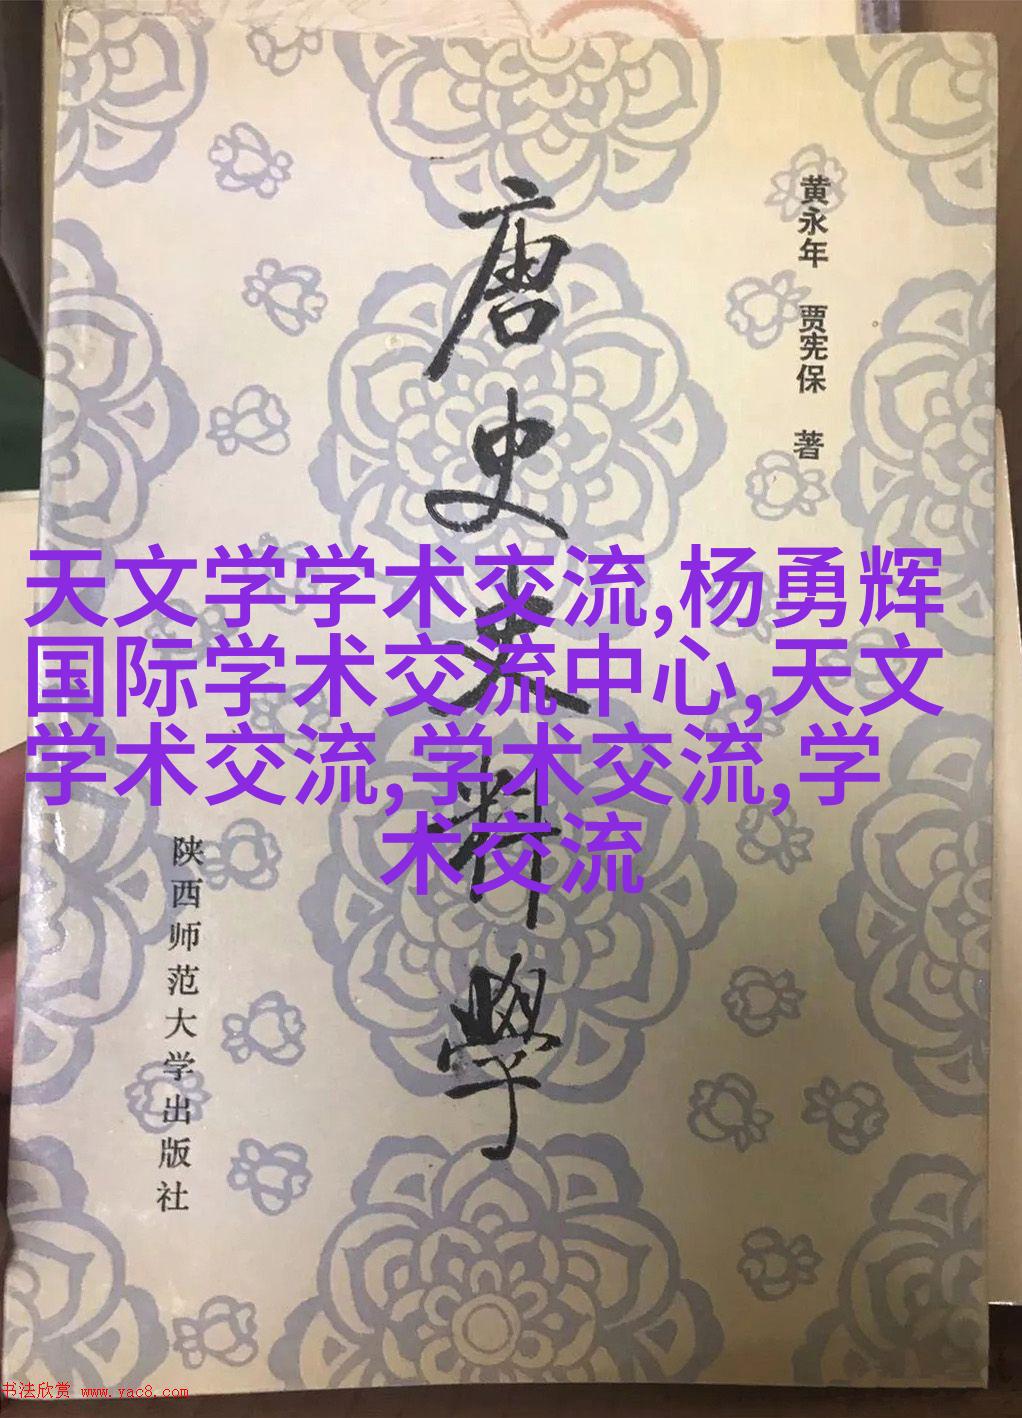 黄永年 贾宪保 著
唐史史料學
天文学学术交流,杨勇辉
国际学术交流中心,天文
学术交流,学术交流,学
术交流
陕西师范大学出版社
书法欣赏 www.yac8.com